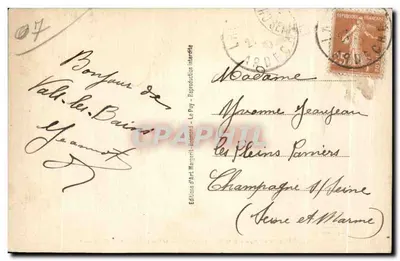 07
Bonjour de
Vals-les-Bains
Jeannot
Editions d'Art Margerit-Brémond - Le Puy - Reproduction interdite
ARDECHE
ARDECHE
Madame
Yvonne Jeanjean
les Pleins Paniers
Champagne s/Seine
(Seine et Marne)
CPARHIPHIL